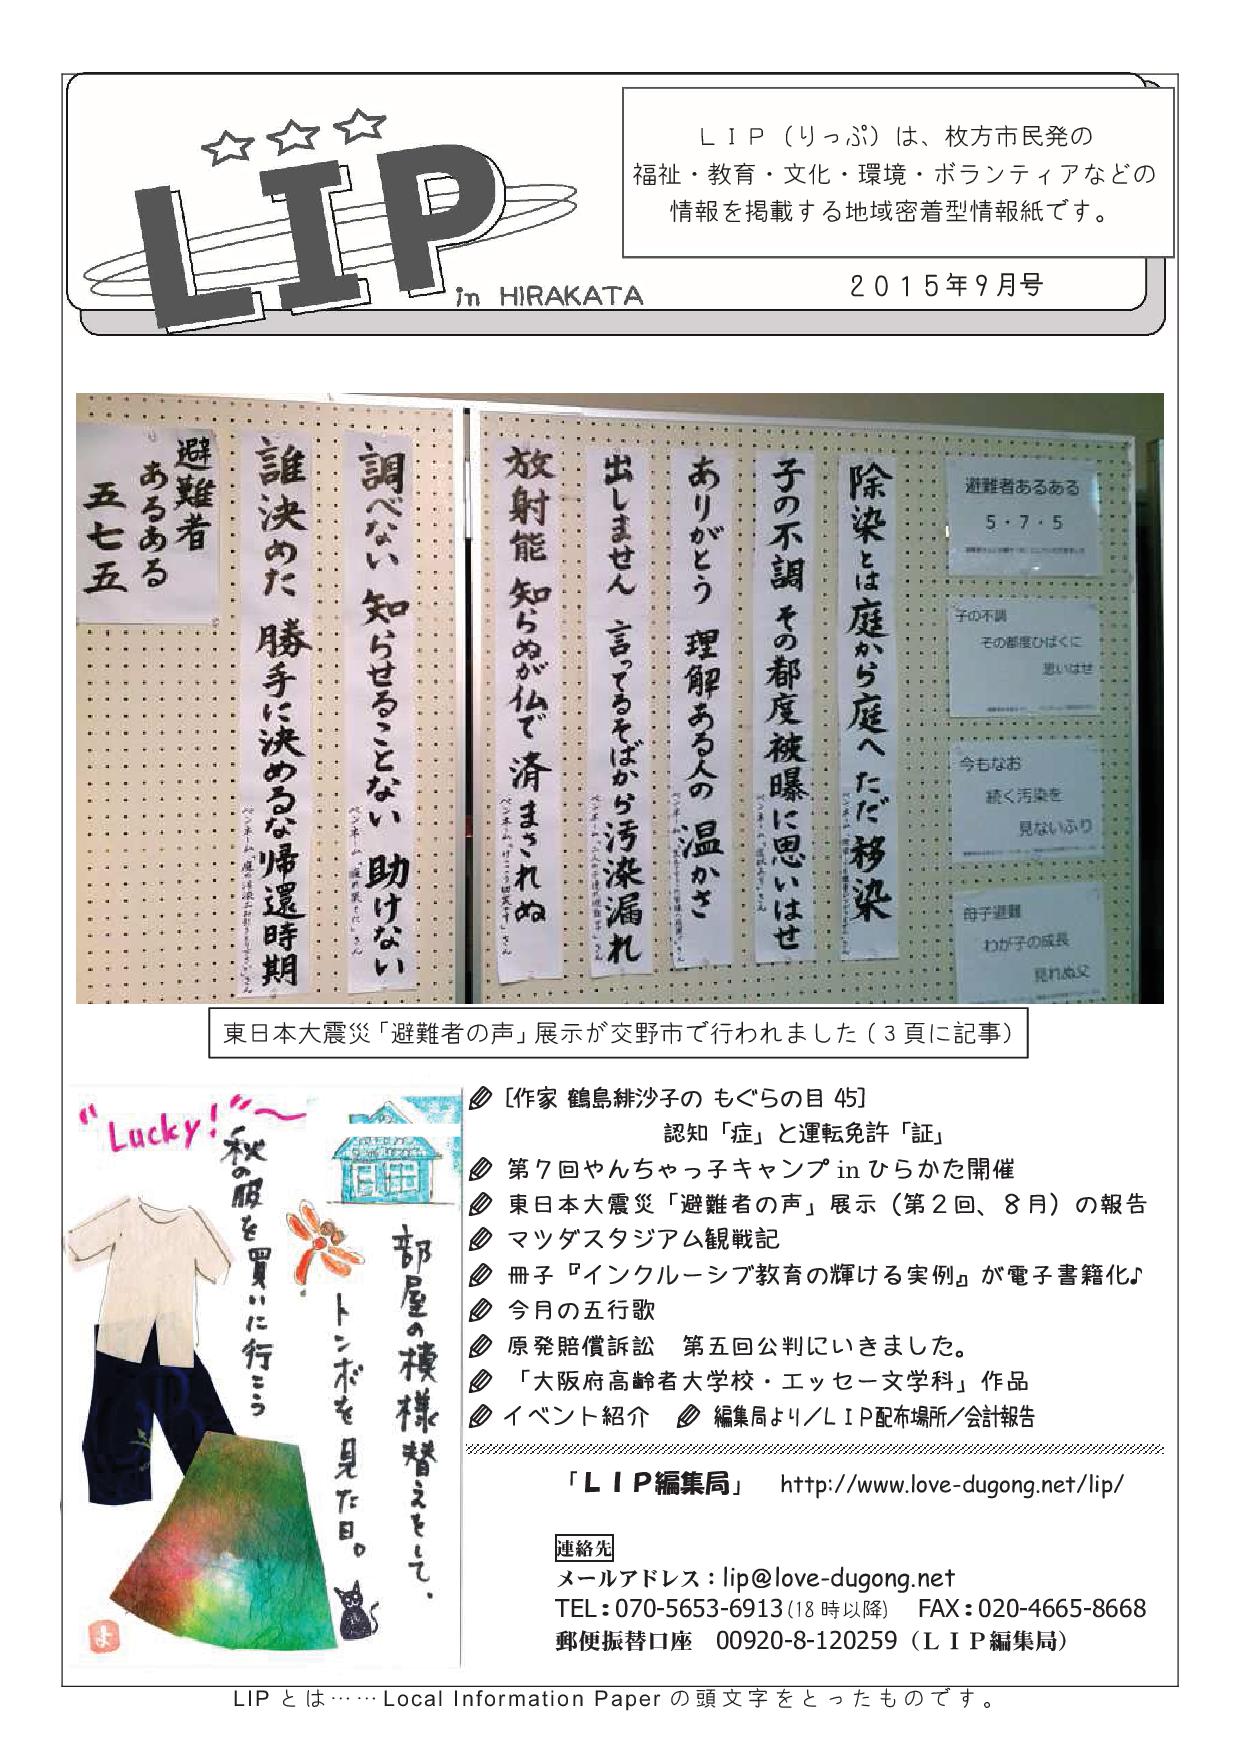 LIP
in HIRAKATA
ＬＩＰ（りっぷ）は、枚方市民発の
福祉・教育・文化・環境・ボランティアなどの
情報を掲載する地域密着型情報紙です。
２０１５年９月号
避難者あるある
5・7・5
子の不調
その都度ひばくに
思いはせ
今もなお
続く汚染を
見ないふり
母子避難
わが子の成長
見れぬ父
除染とは庭から庭へ ただ移染
子の不調 その都度被曝に思いはせ
ありがとう 理解ある人の 温かさ
出しません 言ってるそばから汚染漏れ
放射能 知らぬが仏で 済まされぬ
調べない 知らせることない 助けない
誰決めた 勝手に決めるな帰還時期
避難者
あるある
五七五
東日本大震災「避難者の声」展示が交野市で行われました（３頁に記事）
"Lucky!"～
部屋の模様替えをして、
トンボを見た日。
秋の服を買いに行こう
よ
[作家 鶴島緋沙子の もぐらの目 45]
認知「症」と運転免許「証」
第７回やんちゃっ子キャンプ in ひらかた開催
東日本大震災「避難者の声」展示（第２回、８月）の報告
マツダスタジアム観戦記
冊子『インクルーシブ教育の輝ける実例』が電子書籍化♪
今月の五行歌
原発賠償訴訟　第五回公判にいきました。
「大阪府高齢者大学校・エッセー文学科」作品
イベント紹介　編集局より／ＬＩＰ配布場所／会計報告
「ＬＩＰ編集局」　http://www.love-dugong.net/lip/
連絡先
メールアドレス：lip@love-dugong.net
TEL：070-5653-6913(18 時以降)　FAX：020-4665-8668
郵便振替口座　00920-8-120259（ＬＩＰ編集局）
LIP とは……Local Information Paper の頭文字をとったものです。